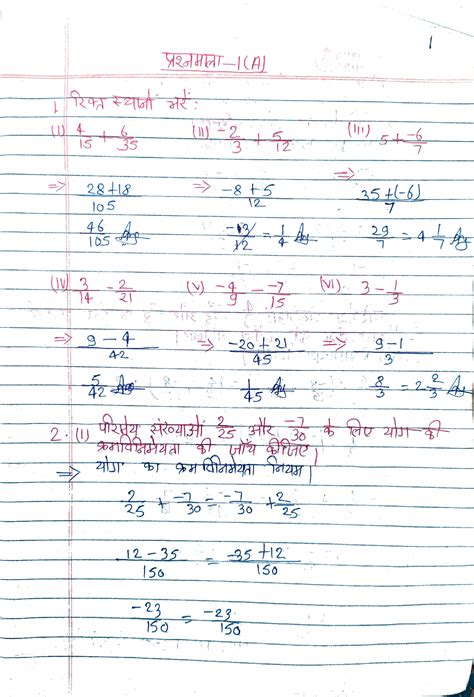 1
प्रश्नमाला-1(A)
1. रिक्त स्थानों भरें:
(i) 4/15 + 6/35 (ii) -2/3 + 5/12 (iii) 5 + -6/7
⇒ 28+18/105 ⇒ -8+5/12 ⇒ 35+(-6)/7
46/105 Ans = 1/4 Ans 29/7 = 4 1/7 Ans
(iv) 3/14 - 2/21 (v) -4/9 - -7/15 (vi). 3 - 1/3
⇒ 9-4/42 ⇒ -20+21/45 ⇒ 9-1/3
5/42 Ans 1/45 Ans 8/3 = 2 2/3 Ans
2. (i) परिमेय संख्याओं 2/25 और -7/30 के लिए योग की
क्रमविनिमेयता की जाँच कीजिए।
⇒ योग का क्रम विनिमेयता नियम।
2/25 + -7/30 = -7/30 + 2/25
12-35/150 = -35+12/150
-23/150 = -23/150